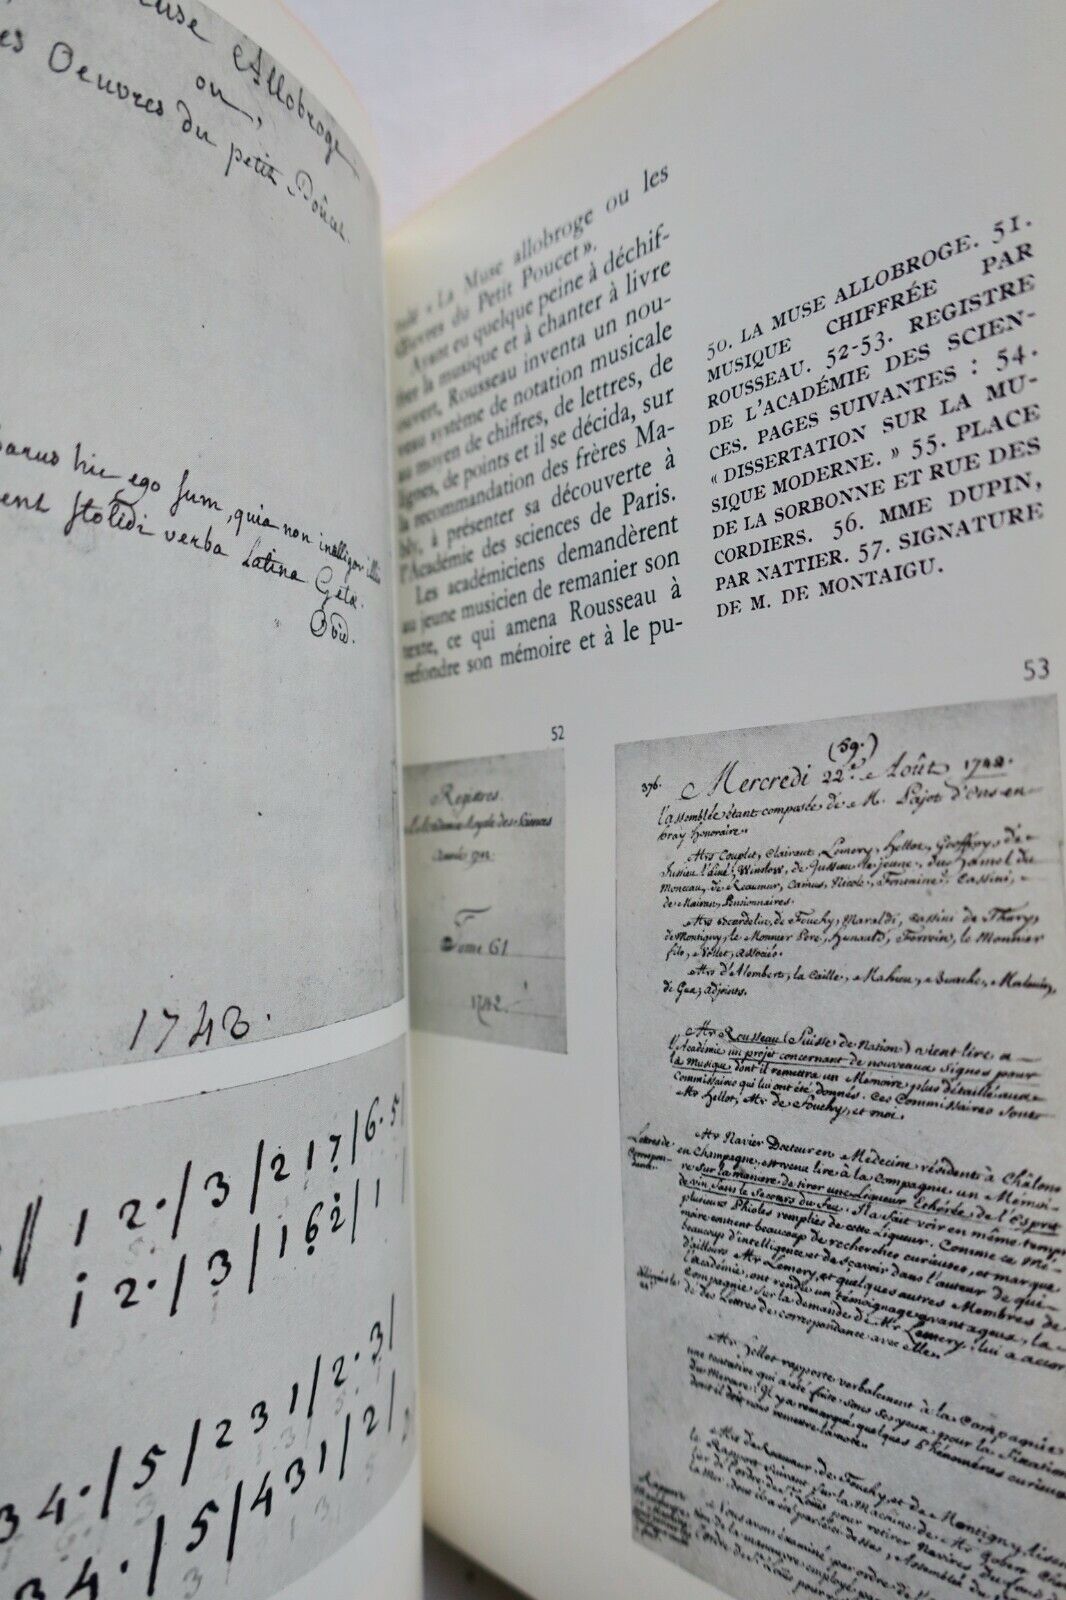 euse Allobroge
ou,
es Oeuvres du petit Poucet.
barus hic ego sum, quia non intelligor illis
ent stolidi verba Latina Getæ.
Ovid.
1742.
1 2 . / 3 / 2 1 7 / 6 . 5 /
1 2 . / 3 / 1 6 2 / 1
3 4 . / 5 / 2 3 1 / 2 . 3 /
3 4 . / 5 / 4 3 1 / 2 /
tulé « La Muse allobroge ou les
Œuvres du Petit Poucet ».
Ayant eu quelque peine à déchif-
frer la musique et à chanter à livre
ouvert, Rousseau inventa un nou-
veau système de notation musicale
au moyen de chiffres, de lettres, de
lignes, de points et il se décida, sur
la recommandation des frères Ma-
bly, à présenter sa découverte à
l'Académie des sciences de Paris.
Les académiciens demandèrent
au jeune musicien de remanier son
texte, ce qui amena Rousseau à
refondre son mémoire et à le pu-
50. LA MUSE ALLOBROGE. 51.
MUSIQUE CHIFFRÉE PAR
ROUSSEAU. 52-53. REGISTRE
DE L'ACADÉMIE DES SCIEN-
CES. PAGES SUIVANTES : 54.
« DISSERTATION SUR LA MU-
SIQUE MODERNE. » 55. PLACE
DE LA SORBONNE ET RUE DES
CORDIERS. 56. MME DUPIN,
PAR NATTIER. 57. SIGNATURE
DE M. DE MONTAIGU.
52
Registres
de l'Academie Royale des Sciences
Année 1742
Tome 61
1742.
53
(59.)
376. Mercredi 22.e Août 1742.
l'assemblée étant composée de M. Pajot d'Ons-en-
bray honoraire.
Mrs Couplet, Clairaut, Lemery, Hellot, Geoffroy, de
Jussieu l'aîné, Winslow, de Jussieu le jeune, du Hamel du
Monceau, de Reaumur, Camus, Nicole, Fontaine, Cassini,
de Mairan, Pensionnaires.
de Fouchy, Maraldi, Cassini de Thury,
de Montigny, le Monnier Pere, le Monnier
fils, Nollet, associés.
Mrs d'Alembert, la Caille, Buache, Malouin,
de Gua, adjoints.
Mr Rousseau (Suisse de Nation) vient lire, a
l'Académie un projet concernant de nouveaux Signes pour
la musique, dont il remettra un Mémoire plus détaillé aux
Commissaires qui lui ont été donnés. Ces Commissaires sont
Mr Hellot, Mr de Fouchy, et moi.
Lettres de
Correspond
Mr Navier Docteur en Médecine, résident à Châlons
en Champagne, est venu lire à la Compagnie un Mémoi-
re sur la maniere de tirer une Liqueur Etherée, de l'Esprit
de vin sans le secours du feu. Il a fait voir en même temps
plusieurs Phioles remplies de cette Liqueur. Comme ce Mé-
moire contient beaucoup de recherches curieuses, et marque
beaucoup d'intelligence et de sçavoir dans l'auteur de qui
d'ailleurs Mr Lemery, et quelques autres Membres de
l'académie, ont rendu un témoignage avantageux, la
Compagnie sur la demande de Mr Lemery, lui a accor
dé des Lettres de correspondance avec elle.
Mr Hellot rapporte verbalement à la Compagnie
une tentative qui a été faite sous ses yeux, pour la fixation
du Mercure; il y a remarqué quelques Phénomenes curieux
dont il doit nous remettre la note.
Mrs de Reaumur, de Fouchy, et de Montigny, lisent
le Rapport suivant sur la Machine de Mr